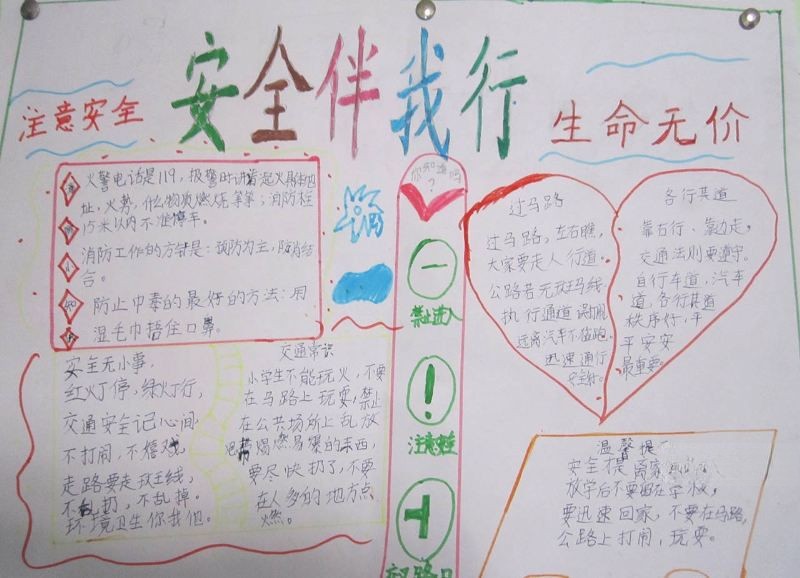 安全伴我行
注意安全
生命无价
火警电话是119,报警时讲着起火具体地
址,火势,什么物质燃烧等等;消防栓
15米以内不准停车。
消防工作的方针是:预防为主,防消结
合。
防止中毒的最好的方法:用
湿毛巾捂住口鼻。
安全无小事,
红灯停,绿灯行,
交通安全记心间
不打闹,不嬉戏
走路要走斑马线,
不乱扔,不乱掉。
环境卫生你我他。
交通常识
小学生不能玩火,不要
在马路上玩耍,禁止
在公共场所上乱放
易燃易爆的东西,
要尽快扔了,不要
在人多的地方点
燃。
你知道吗
?
禁止进入
注意安全
过马路
过马路,左右瞧,
大家要走人行道。
公路若无斑马线
执行通道
远离汽车不临跑
迅速通行
各行其道
靠右行、靠边走,
交通法则要遵守。
自行车道,汽车
道,各行其道
秩序好,平
平安安
最重要。
温馨提
安全才是
放学后不要留在学校,
要迅速回家,不要在马路,
公路上打闹,玩耍。